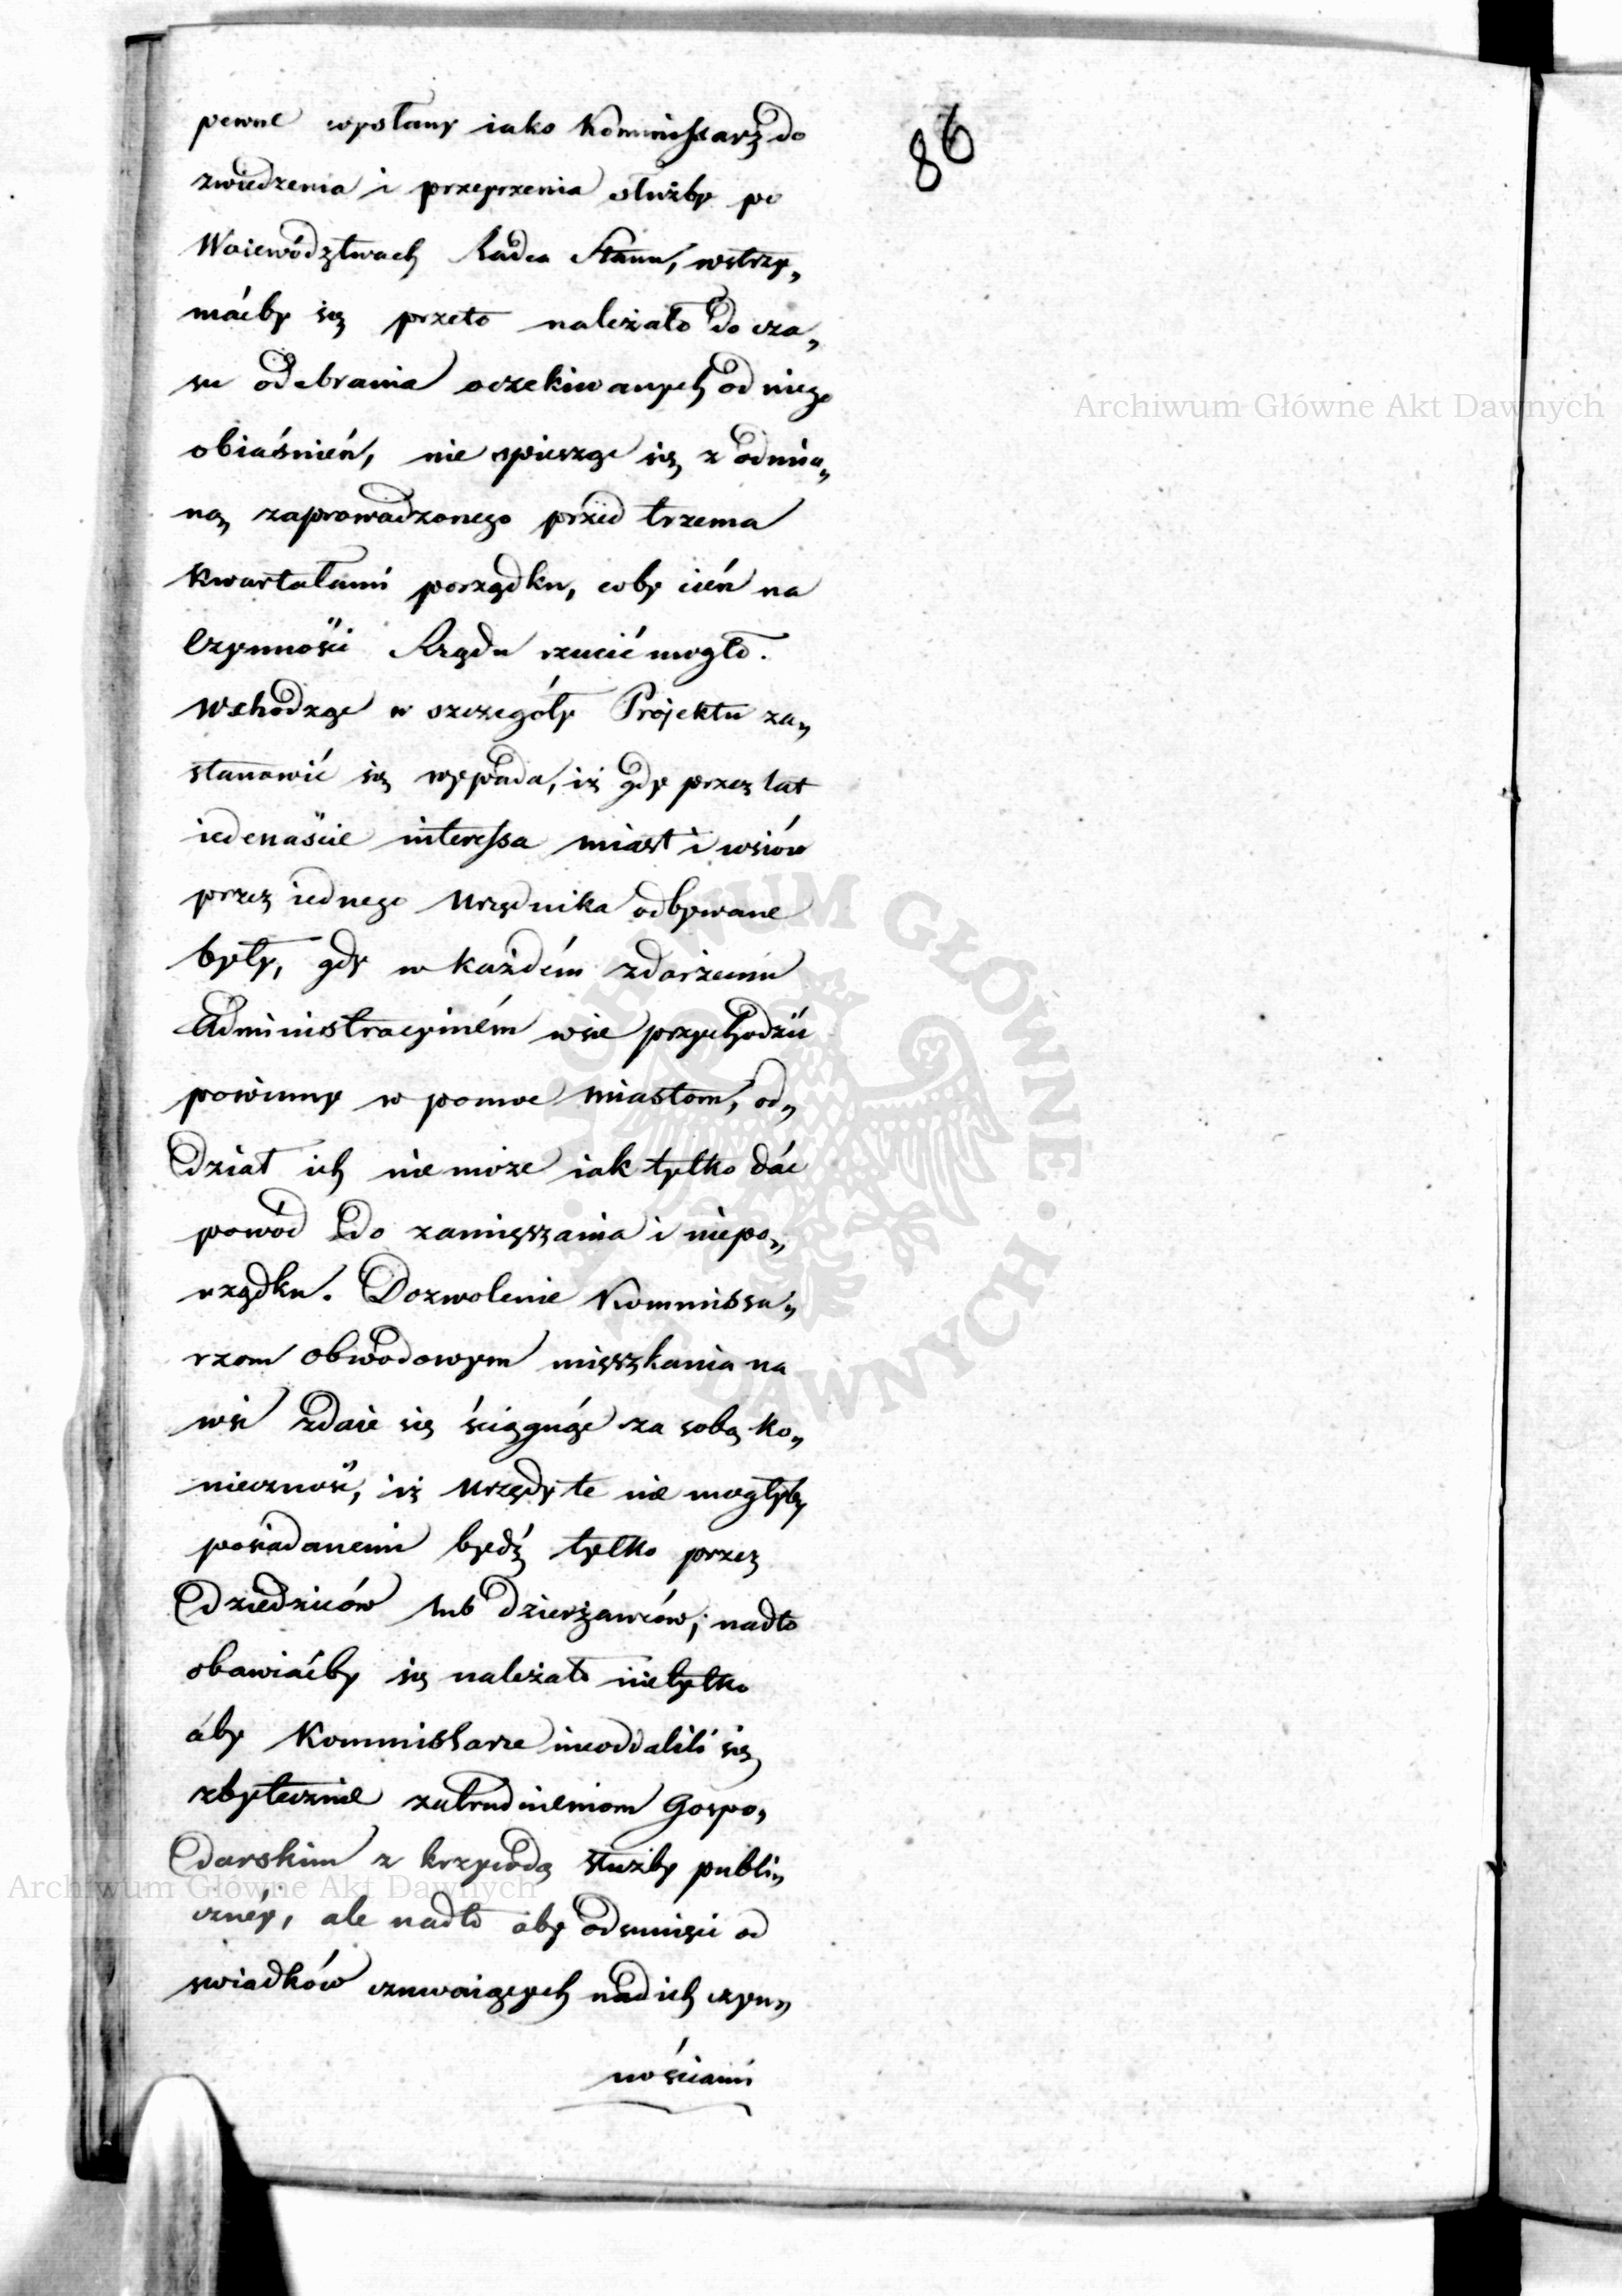 86
pewne wysłany iako Kommissarz do
zwiedzenia i przeyrzenia służby po
Woiewództwach Radca Stanu, wstrzy„
máćby się przeto należało do cza„
su odebrania oczekiwanych od niego
obiaśnień, nie spiesząc się z odmia„
ną zaprowadzonego przed trzema
Kwartałami porządku, coby cień na
Czynności Rządu rzucić mogło.
Wchodząc w szczegóły Projektu za„
stanowić się wypada, iż gdy przez lat
iedenaście interessa miast i wsiów
przez iednego Urzędnika odbywane
były, gdy w każdém zdarzeniu
Administracyiném wsie przychodzić
powinny w pomoc miastom, od„
dział ich nie może iak tylko dać
powód do zamięszania i niepo„
rządku. Dozwolenie Kommissa„
rzom obwodowym mięszkania na
wsi zdaie się ściągnąć za sobą ko„
nieczność, iż Urzędy te nie mogłyby
posiadanemi bydź tylko przez
Dziedziców lub dzierżawców; nadto
obawiáćby się należało nietylko
áby Kommissarze nieoddalili się
zbytecznie zatrudnieniom Gospo„
darskim z krzywdą służby publi„
cznéy, ale nadto aby odsunięci od
swiadków czuwaiących nad ich czyn„
nościami
Archiwum Główne Akt Dawnych
Archiwum Główne Akt Dawnych
ARCHIWUM GŁÓWNE AKT DAWNYCH